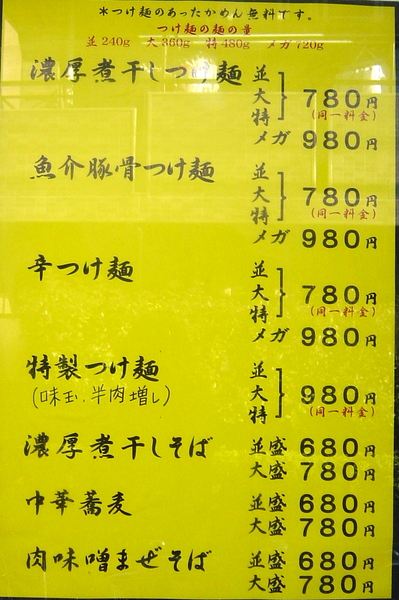 ＊つけ麺のあったかめん無料です。
つけ麺の麺の量
並240g 大360g 特480g メガ720g
濃厚煮干しつけ麺 並 大 特 780円
(同一料金)
メガ 980円
魚介豚骨つけ麺 並 大 特 780円
(同一料金)
メガ 980円
辛つけ麺 並 大 特 780円
(同一料金)
メガ 980円
特製つけ麺 並 大 特 980円
(味玉、半肉増し)
(同一料金)
濃厚煮干しそば 並盛 680円
大盛 780円
中華蕎麦 並盛 680円
大盛 780円
肉味噌まぜそば 並盛 680円
大盛 780円